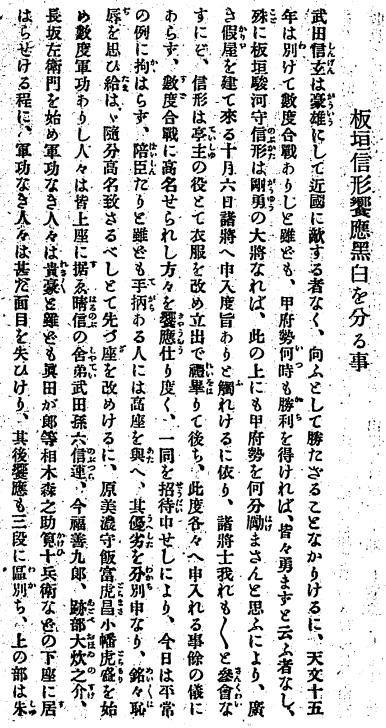 板垣信形饗應黑白を分る事
武田信玄は豪雄にして近國に敵する者なく、向ふとして勝たざることなかりけるに、天文十五
年は別けて數度合戰ありしと雖ども、甲府勢何時も勝利を得ければ、皆々勇まずと云ふ者なし、
殊に板垣駿河守信形は剛勇の大將なれば、此の上にも甲府勢を何分勵まさんと思ふにより、廣
き假屋を建て來る十月六日諸將へ申入度旨ありと觸れけるに依り、諸將士我れも〳〵と參會な
すにぞ、信形は亭主の役とて衣服を改め立出で禮畢りて後ち、此度各々へ申入れる事餘の儀に
あらず、數度合戰に高名せられし方々を饗應仕り度く、一同を招待申せしにより、今日は平常
の例に拘はらず、陪臣たりと雖ども手柄ある人には高座を與へ、其優劣を分別申なり、銘々恥
辱を思ひ給はゞ隨分高名致さるべしとて先づ座を改めけるに、原美濃守飯富虎昌小幡虎盛を始
め數度軍功ありし人々は皆上座に据ゑ晴信の舍弟武田孫六信連、今福善九郎、跡部大炊之介、
長坂左衛門を始め軍功なき人々は貴豪と雖ども眞田が郎等相木森之助筧十兵衛などの下座に居
はらせける程に、軍功なき人々は甚だ面目を失ひけり、其後饗應も三段に區別ち、上の部は朱